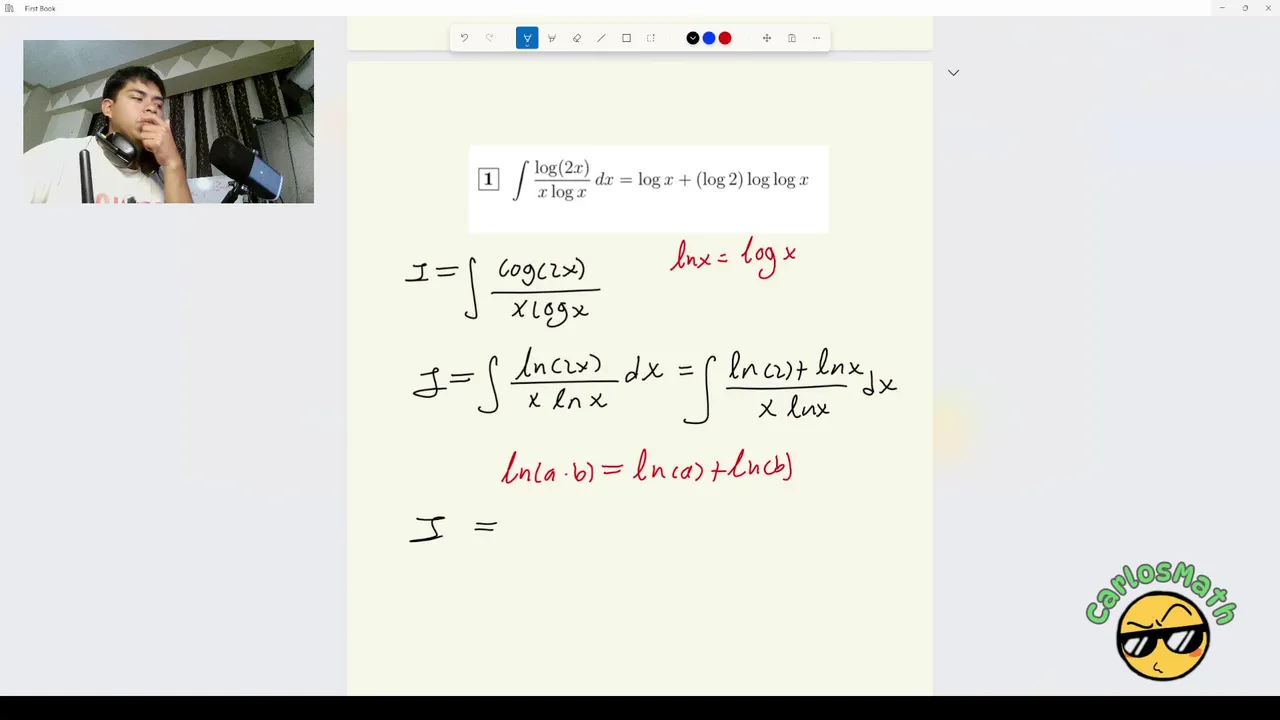 First Book
1 ∫ log(2x) / (x log x) dx = log x + (log 2) log log x
lnx = log x
I = ∫ log(2x) / (x log x)
I = ∫ ln(2x) / (x ln x) dx = ∫ (ln(2) + lnx) / (x lnx) dx
ln(a · b) = ln(a) + ln(b)
I =
CarlosMath